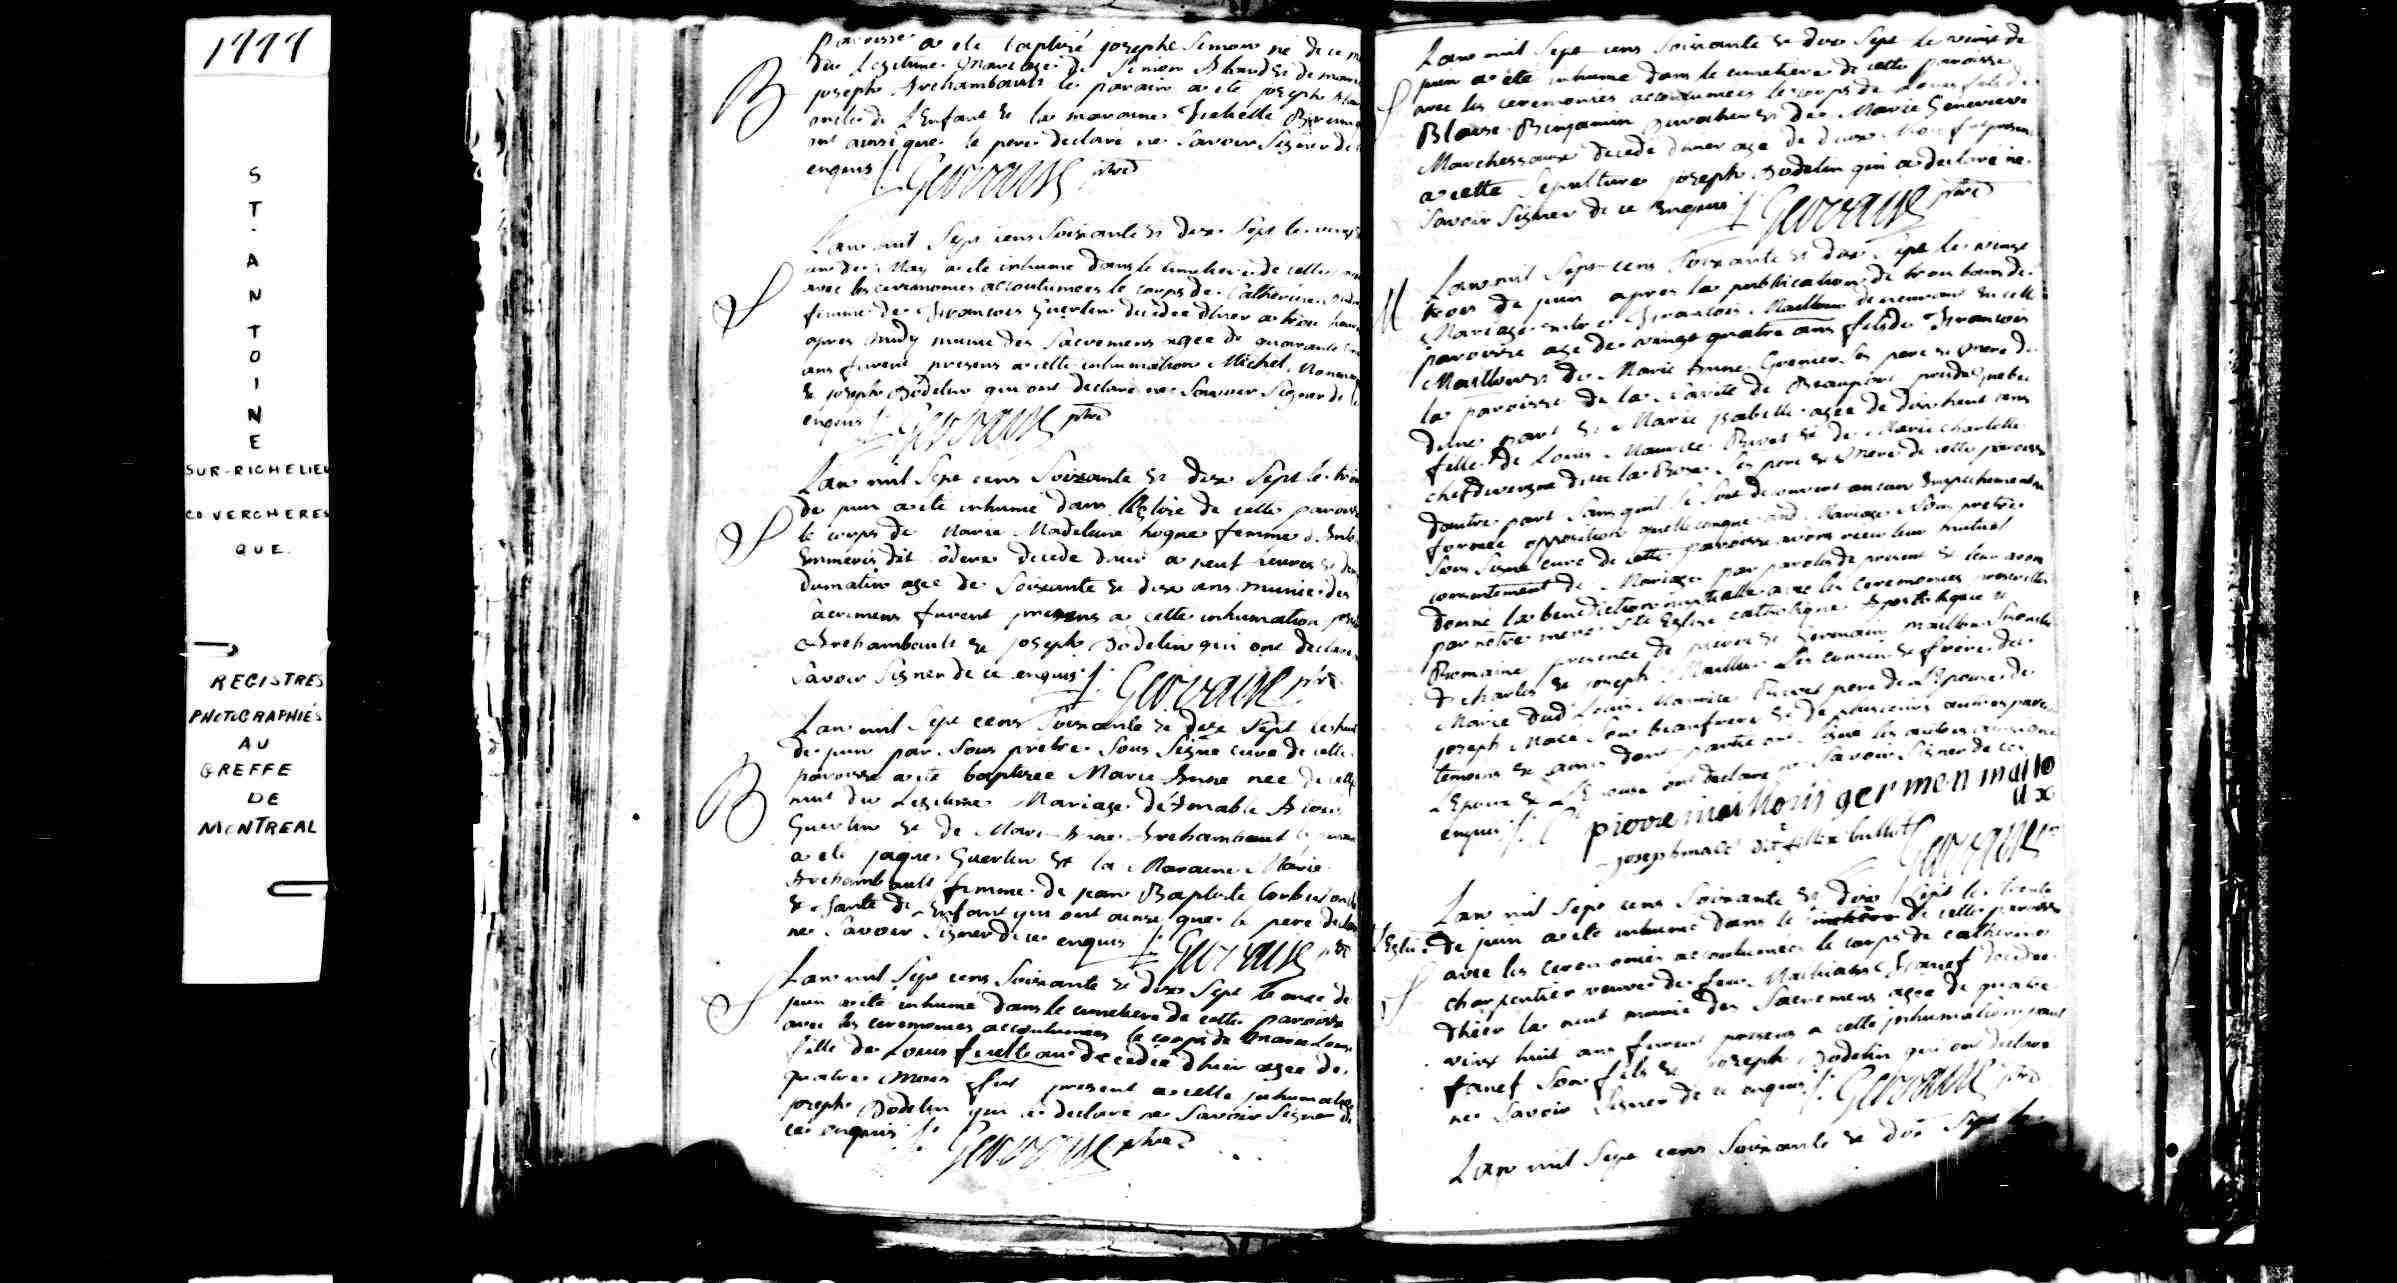 1777
S
T.
A
N
T
O
I
N
E
SUR-RICHELIEU
CO VERCHERES
QUE.
REGISTRES
PHOTOGRAPHIÉS
AU
GREFFE
DE
MONTREAL
paroisse a ete baptisé joseph Simon né de ce
du Legitime Mariage de Simon Allard & de marie
B
joseph Archambault le parain a ete joseph
oncle de L'Enfant & la maraine
ont ainsi que le pere declaré ne Savoir Signer de
enquis /. Gervaise ptre
Lan mil Sept cens Soixante & dix Sept le vingt
un de May a ete inhumé dans le cimetiere de cette
S
avec les ceremonies accoutumees le corps de Catherine
femme de francois Guertin decedee dhier a trois heures
apres midy munie des Sacremens agee de quarante
ans furent presens a cette inhumation Michel
& joseph Bodelin qui ont declaré ne Savoir Signer de ce
enquis /. Gervaise ptre
Lan mil Sept cens Soixante & dix Sept le trois
de juin a ete inhumé dans l'Eglise de cette paroisse
S
le corps de Marie Madeleine hogue femme d
decede dhier a neuf heures &
du matin agee de Soixante & dix ans munie des
Sacremens furent presens a cette inhumation
Archambault & joseph Bodelin qui ont declaré
Savoir Signer de ce enquis /. Gervaise ptre
Lan mil Sept cens Soixante & dix Sept le huit
de juin par Nous prêtre Sous Signé curé de cette
paroisse a ete baptisée Marie Anne née de cette
B
nuit du Legitime Mariage d'Amable
Guertin & de Marie Anne Archambault le parain
a ete jaques Guertin & la Maraine Marie
Archambault femme de jean Baptiste
& tante de L'Enfant qui ont ainsi que le pere declaré
ne Savoir Signer de ce enquis /. Gervaise ptre
Lan mil Sept cens Soixante & dix Sept le onze de
S
juin a ete inhumé dans le cimetiere de cette paroisse
avec les ceremonies accoutumees le corps de Marie Louise
fille de Louis decedée dhier agee de
quatre mois fut present a cette inhumation
joseph Bodelin qui a declaré ne Savoir Signer de
ce enquis /. Gervaise ptre
Lan mil Sept cens Soixante & dix Sept le vingt de
juin a été inhumé dans le cimetiere de cette paroisse
S
avec les ceremonies accoutumees le corps de Louis fils de
Blaise Benjamin & de Marie Genevieve
Marchessaux decede dhier age de deux Mois fut present
a cette Sepulture joseph Bodelin qui a declaré ne
Savoir Signer de ce Enquis /. Gervaise ptre
Lan mil Sept cens Soixante & dix Sept le vingt
M
trois de juin apres la publication de trois bans de
Mariage entre francois Mailloux demeurant en cette
paroisse age de vingt quatre ans fils de francois
Mailloux & de Marie Anne Grenier Ses pere & mere de
la paroisse de la Nativité de Beauport pres de Quebec
dune part & Marie ysabelle agee de dix huit ans
fille de Louis Maurice Rivet & de Marie charlotte
chefdevergne Ses pere & Mere de cette paroisse
dautre part Sans quil Se Soit decouvert aucun Empechement
formée opposition quelleconque aud. Mariage Nous pretre
Sous Signé curé de cette paroisse avons reçu leur mutuel
consentement de Mariage par paroles de present & leur avons
donné la benediction nuptialle avec les ceremonies prescrittes
par notre mere Ste Eglise catholique Apostolique &
Romaine presence de pierre & Germain mailloux
de charles & joseph Mailloux Ses cousins & freres du
Marié dud Louis Maurice Rivet pere de L'Epouse de
joseph Macé Son beaufrere & de plusieurs autres parens
temoins & amis dont partie ont Signé les autres ainsi que
L'Epoux & L'Epouse ont declaré ne Savoir Signer de ce
enquis /. pierre maillous germen maillo
ux
joseph mace Gervaise ptre
Lan mil Sept cens Soixante & dix Sept le trente
L'Eglise de juin a ete inhumé dans le de cette paroisse
avec les ceremonies accoutumees le corps de catherine
S
charpentier veuve de feu Mathias decedee
dhier la nuit munie des Sacremens agee de quatre
vingt huit ans furent presens a cette inhumation
Son fils & joseph Bodelin qui ont declaré
ne Savoir Signer de ce enquis /. Gervaise ptre
Lan mil Sept cens Soixante & dix Sept le